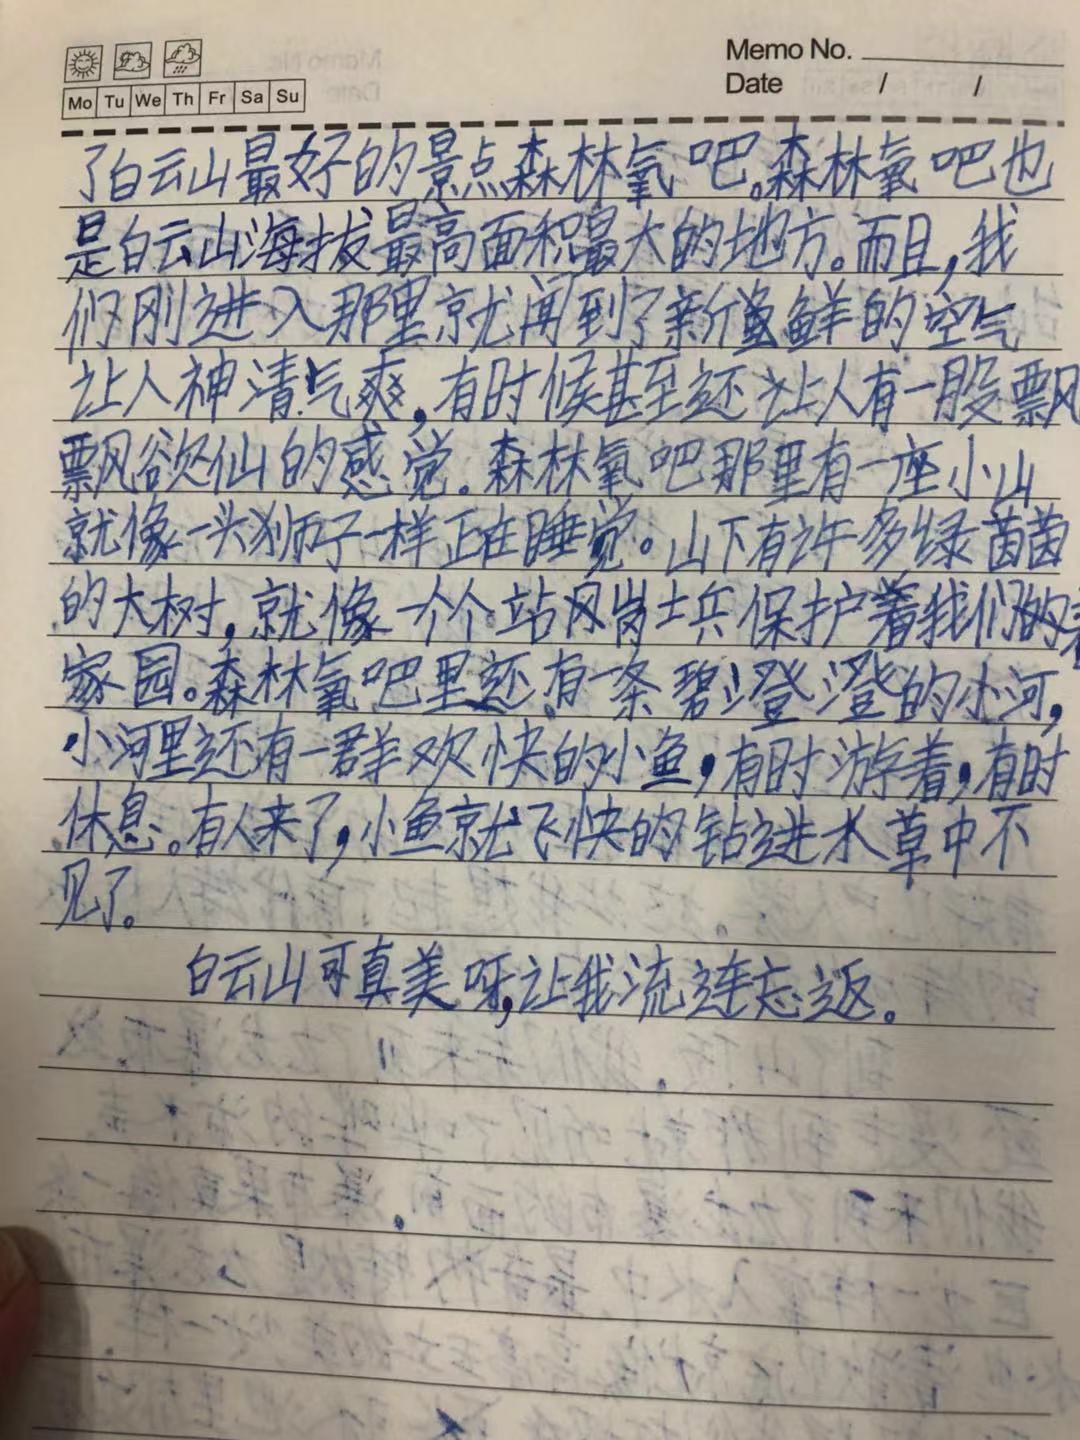 Memo No.
Date / /
Mo Tu We Th Fr Sa Su
了白云山最好的景点森林氧吧。森林氧吧也
是白云山海拔最高面积最大的地方。而且,我
们刚进入那里就闻到了新鲜的空气
让人神清气爽,有时候甚至还让人有一股飘
飘欲仙的感觉.森林氧吧那里有一座小山
就像一头狮子一样正在睡觉。山下有许多绿茵茵
的大树,就像一个个站岗士兵保护着我们的
家园。森林氧吧里还有一条碧澄澄的小河,
小河里还有一群欢快的小鱼,有时游着,有时
休息。有人来了,小鱼就飞快的钻进水草中不
见了。
白云山可真美呀,让我流连忘返。